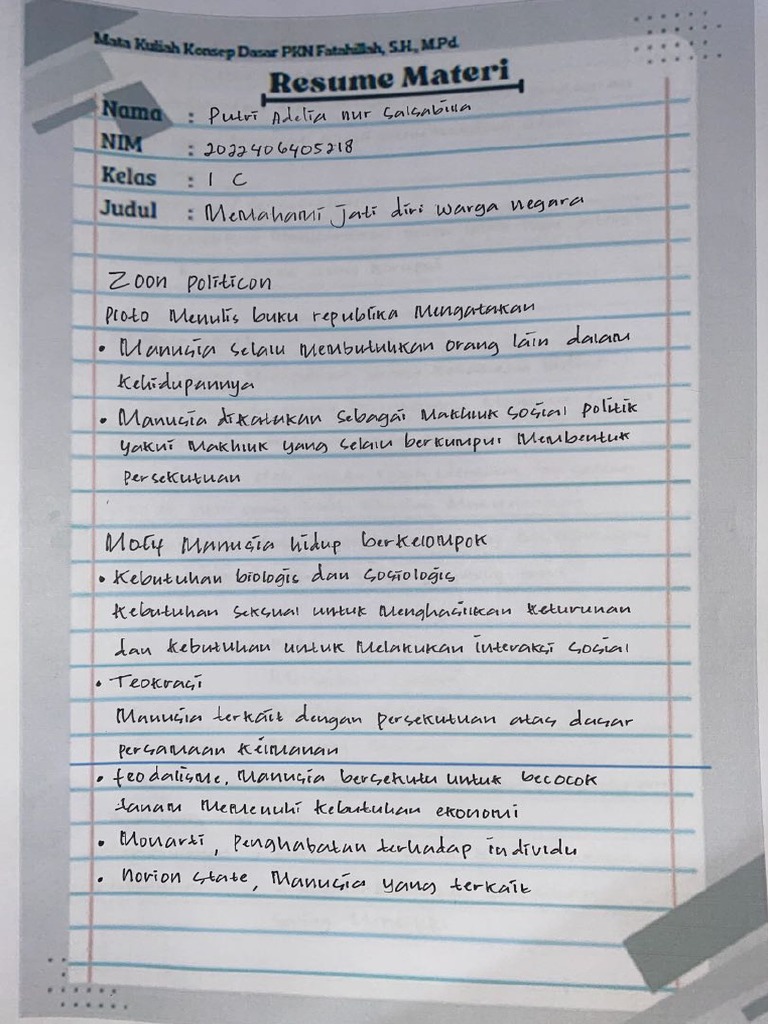 Mata Kuliah Konsep Dasar PKN Fatahillah, S.H., M.Pd.
Resume Materi
Nama : Putri Adelia nur salsabina
NIM : 2022406405218
Kelas : 1 C
Judul : Memahami jati diri warga negara
Zoon politicon
Ploto Menulis buku republika Mengatakan
• Manusia selalu Membutuhkan orang lain dalam
kehidupannya
• Manusia dikatakan sebagai Makhluk sosial politik
yakni Makhluk yang selalu berkumpul Membentuk
persekutuan
Motif Manusia hidup berkelompok
• Kebutuhan biologis dan sosiologis
Kebutuhan seksual untuk Menghasilkan keturunan
dan kebutuhan untuk Melakukan interaksi sosial
• Teokrasi
Manusia terkait dengan persekutuan atas dasar
persamaan keimanan
• feodalisme, Manusia bersekutu untuk becocok
tanam Memenuhi kebutuhan ekonomi
• Monarti, penghabatan terhadap individu
• norion state, Manusia yang terkait